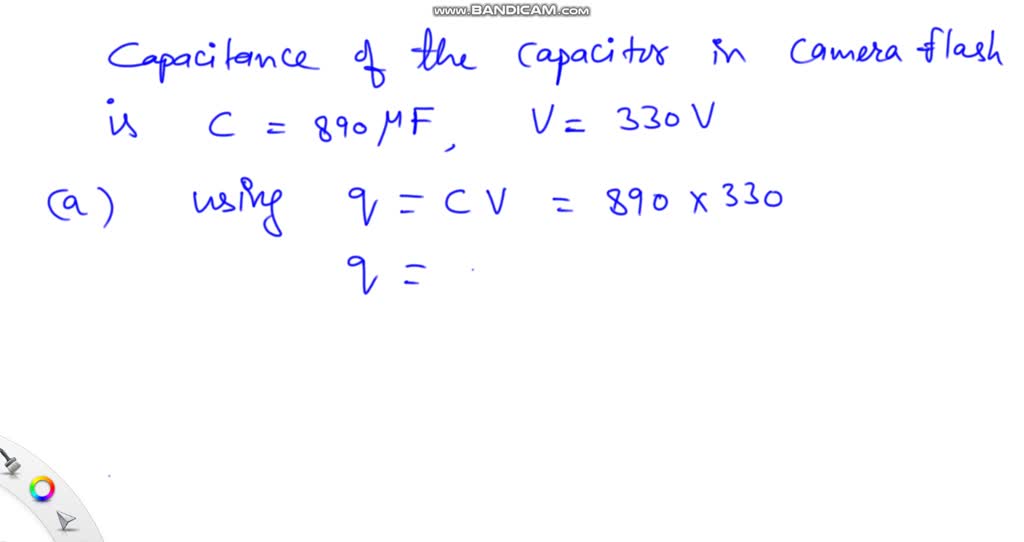 www.BANDICAM.com
Capacitance of the capacitor in camera flash
is C = 890 μF, V = 330 V
(a) using q = C V = 890 × 330
q =